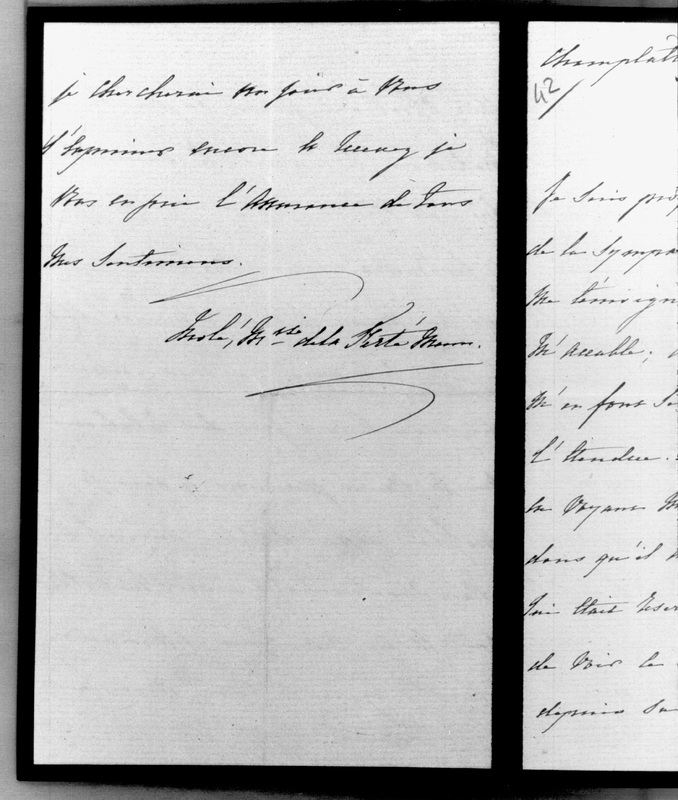 je chercherai un jour à vous
l'exprimer encore
vous en prie l'assurance de tous
mes sentimens.
Molé, Mise de la Ferté Meun.
Champlatr
42
Je suis pro
de la Sympa
me témoign
m'accable;
m'en font
l'étendue.
en voyant
dans qu'il
lui était reser
de voir le
depuis sa